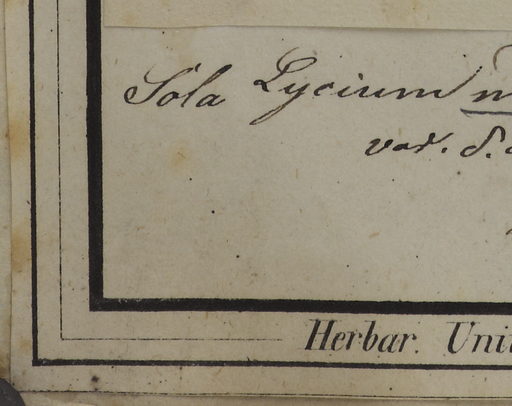 Sola Lycium
var. δ.
Herbar. Uni